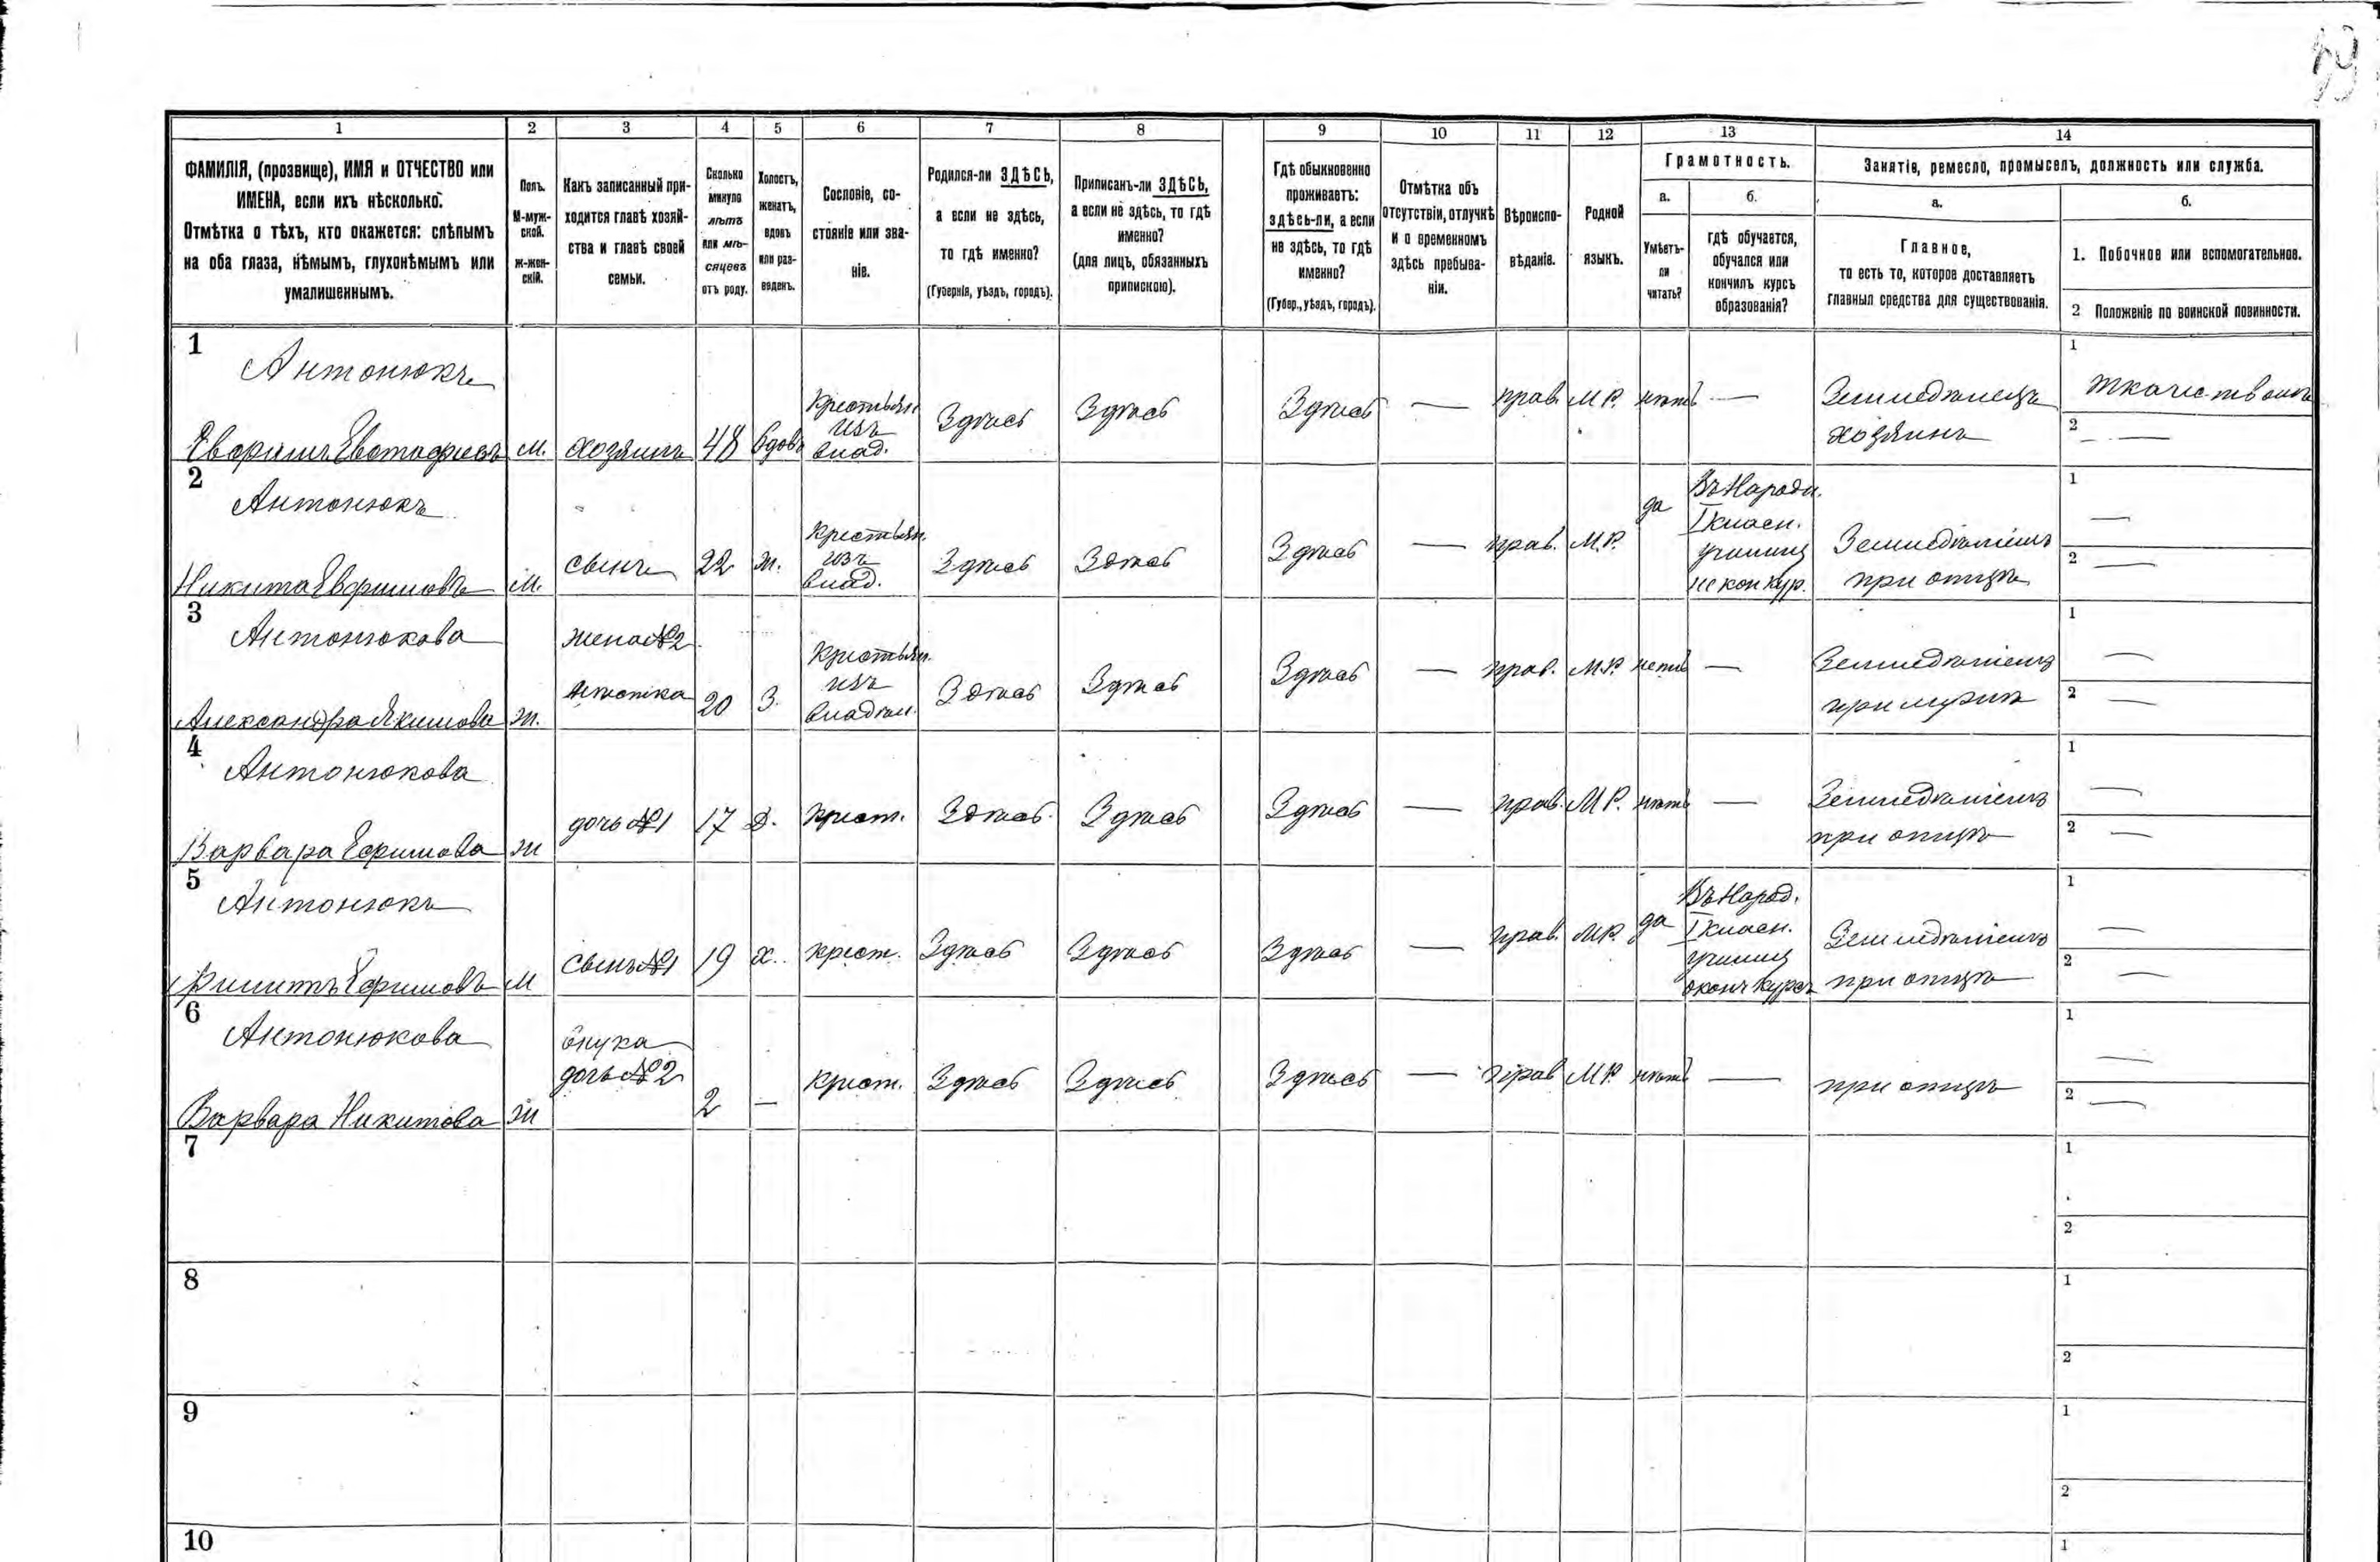 39
1 2 3 4 5 6 7 8 9 10 11 12 13 14
ФАМИЛІЯ, (прозвище), ИМЯ и ОТЧЕСТВО или
ИМЕНА, если ихъ нѣсколько.
Отмѣтка о тѣхъ, кто окажется: слѣпымъ
на оба глаза, нѣмымъ, глухонѣмымъ или
умалишеннымъ.
Полъ.
М-муж-
ской.
Ж-жен-
скій.
Какъ записанный при-
ходится главѣ хозяй-
ства и главѣ своей
семьи.
Сколько
минуло
лѣтъ
или мѣ-
сяцевъ
отъ роду.
Холостъ,
женатъ,
вдовъ
или раз-
веденъ.
Сословіе, со-
стояніе или зва-
ніе.
Родился-ли ЗДѢСЬ,
а если не здѣсь,
то гдѣ именно?
(Губернія, уѣздъ, городъ).
Приписанъ-ли ЗДѢСЬ,
а если не здѣсь, то гдѣ
именно?
(для лицъ, обязанныхъ
припискою).
Гдѣ обыкновенно
проживаетъ:
здѣсь-ли, а если
не здѣсь, то гдѣ
именно?
(Губер., уѣздъ, городъ).
Отмѣтка объ
отсутствіи, отлучкѣ
и о временномъ
здѣсь пребыва-
ніи.
Вѣроиспо-
вѣданіе.
Родной
языкъ.
Грамотность.
а.
Умѣетъ-
ли
читать?
б.
гдѣ обучается,
обучался или
кончилъ курсъ
образованія?
Занятіе, ремесло, промыселъ, должность или служба.
а.
Главное,
то есть то, которое доставляетъ
главныя средства для существованія.
б.
1. Побочное или вспомогательное.
2 Положеніе по воинской повинности.
1
Антонюкъ
Евфимъ Евстафіевъ
м.
хозяинъ
48
вдовъ
Крестьян.
изъ
влад.
Здѣсь
Здѣсь
Здѣсь
—
прав.
М.Р.
нѣтъ
—
Земледѣлецъ
хозяинъ
1
2 —
2
Антонюкъ
Никита Евфимовъ
м.
сынъ
22
ж.
Крестьян.
изъ
влад.
Здѣсь
Здѣсь
Здѣсь
—
прав.
М.Р.
да
Въ Народн.
I класн.
училищ
не кон кур.
Земледѣліемъ
при отцѣ
1 —
2 —
3
Антонюкова
Александра Якимова
ж.
жена №2
20
З.
Крестьян.
изъ
владѣл.
Здѣсь
Здѣсь
Здѣсь
—
прав.
М.Р.
нетъ
—
Земледѣліемъ
при мужѣ
1 —
2 —
4
Антонюкова
Варвара Ефимова
ж
дочь №1
17
д.
крест.
Здѣсь
Здѣсь
Здѣсь
—
прав.
М.Р.
нѣтъ
—
Земледѣліемъ
при отцѣ
1 —
2 —
5
Антонюкъ
Филиппъ Ефимовъ
м
сынъ №1
19
х.
крест.
Здѣсь
Здѣсь
Здѣсь
—
прав.
М.Р.
да
Въ Народ.
I класн.
училищ
оконч курсъ
Земледѣліемъ
при отцѣ
1 —
2 —
6
Антонюкова
Варвара Никитова
ж
внука
дочь №2
2
—
крест.
Здѣсь
Здѣсь
Здѣсь
—
прав
М.Р.
нѣтъ
—
при отцѣ
1 —
2 —
7
1
2
8
1
2
9
1
2
10
1